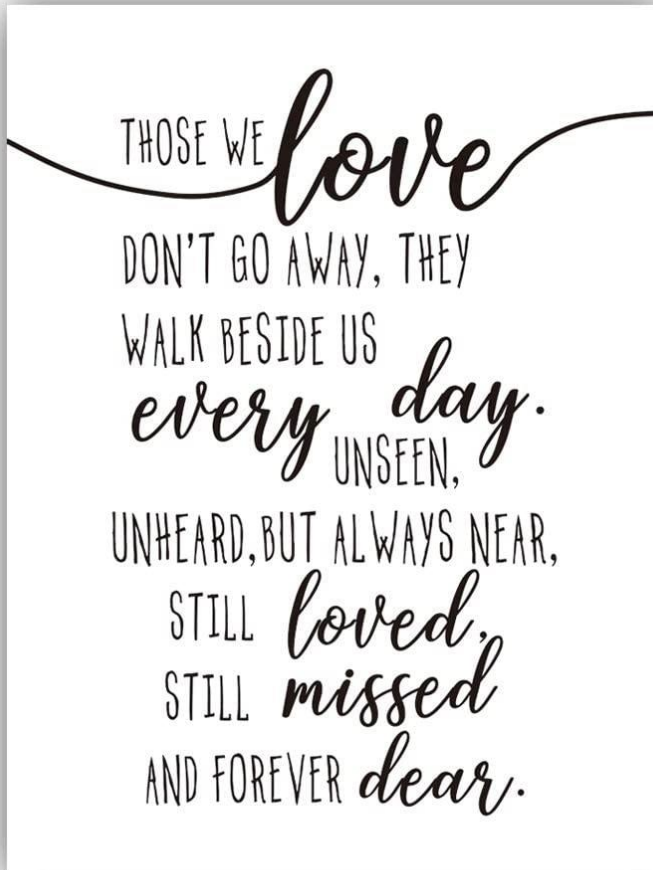 THOSE WE love
DON'T GO AWAY, THEY
WALK BESIDE US
every day.
UNSEEN,
UNHEARD, BUT ALWAYS NEAR,
STILL loved,
STILL missed
AND FOREVER dear.